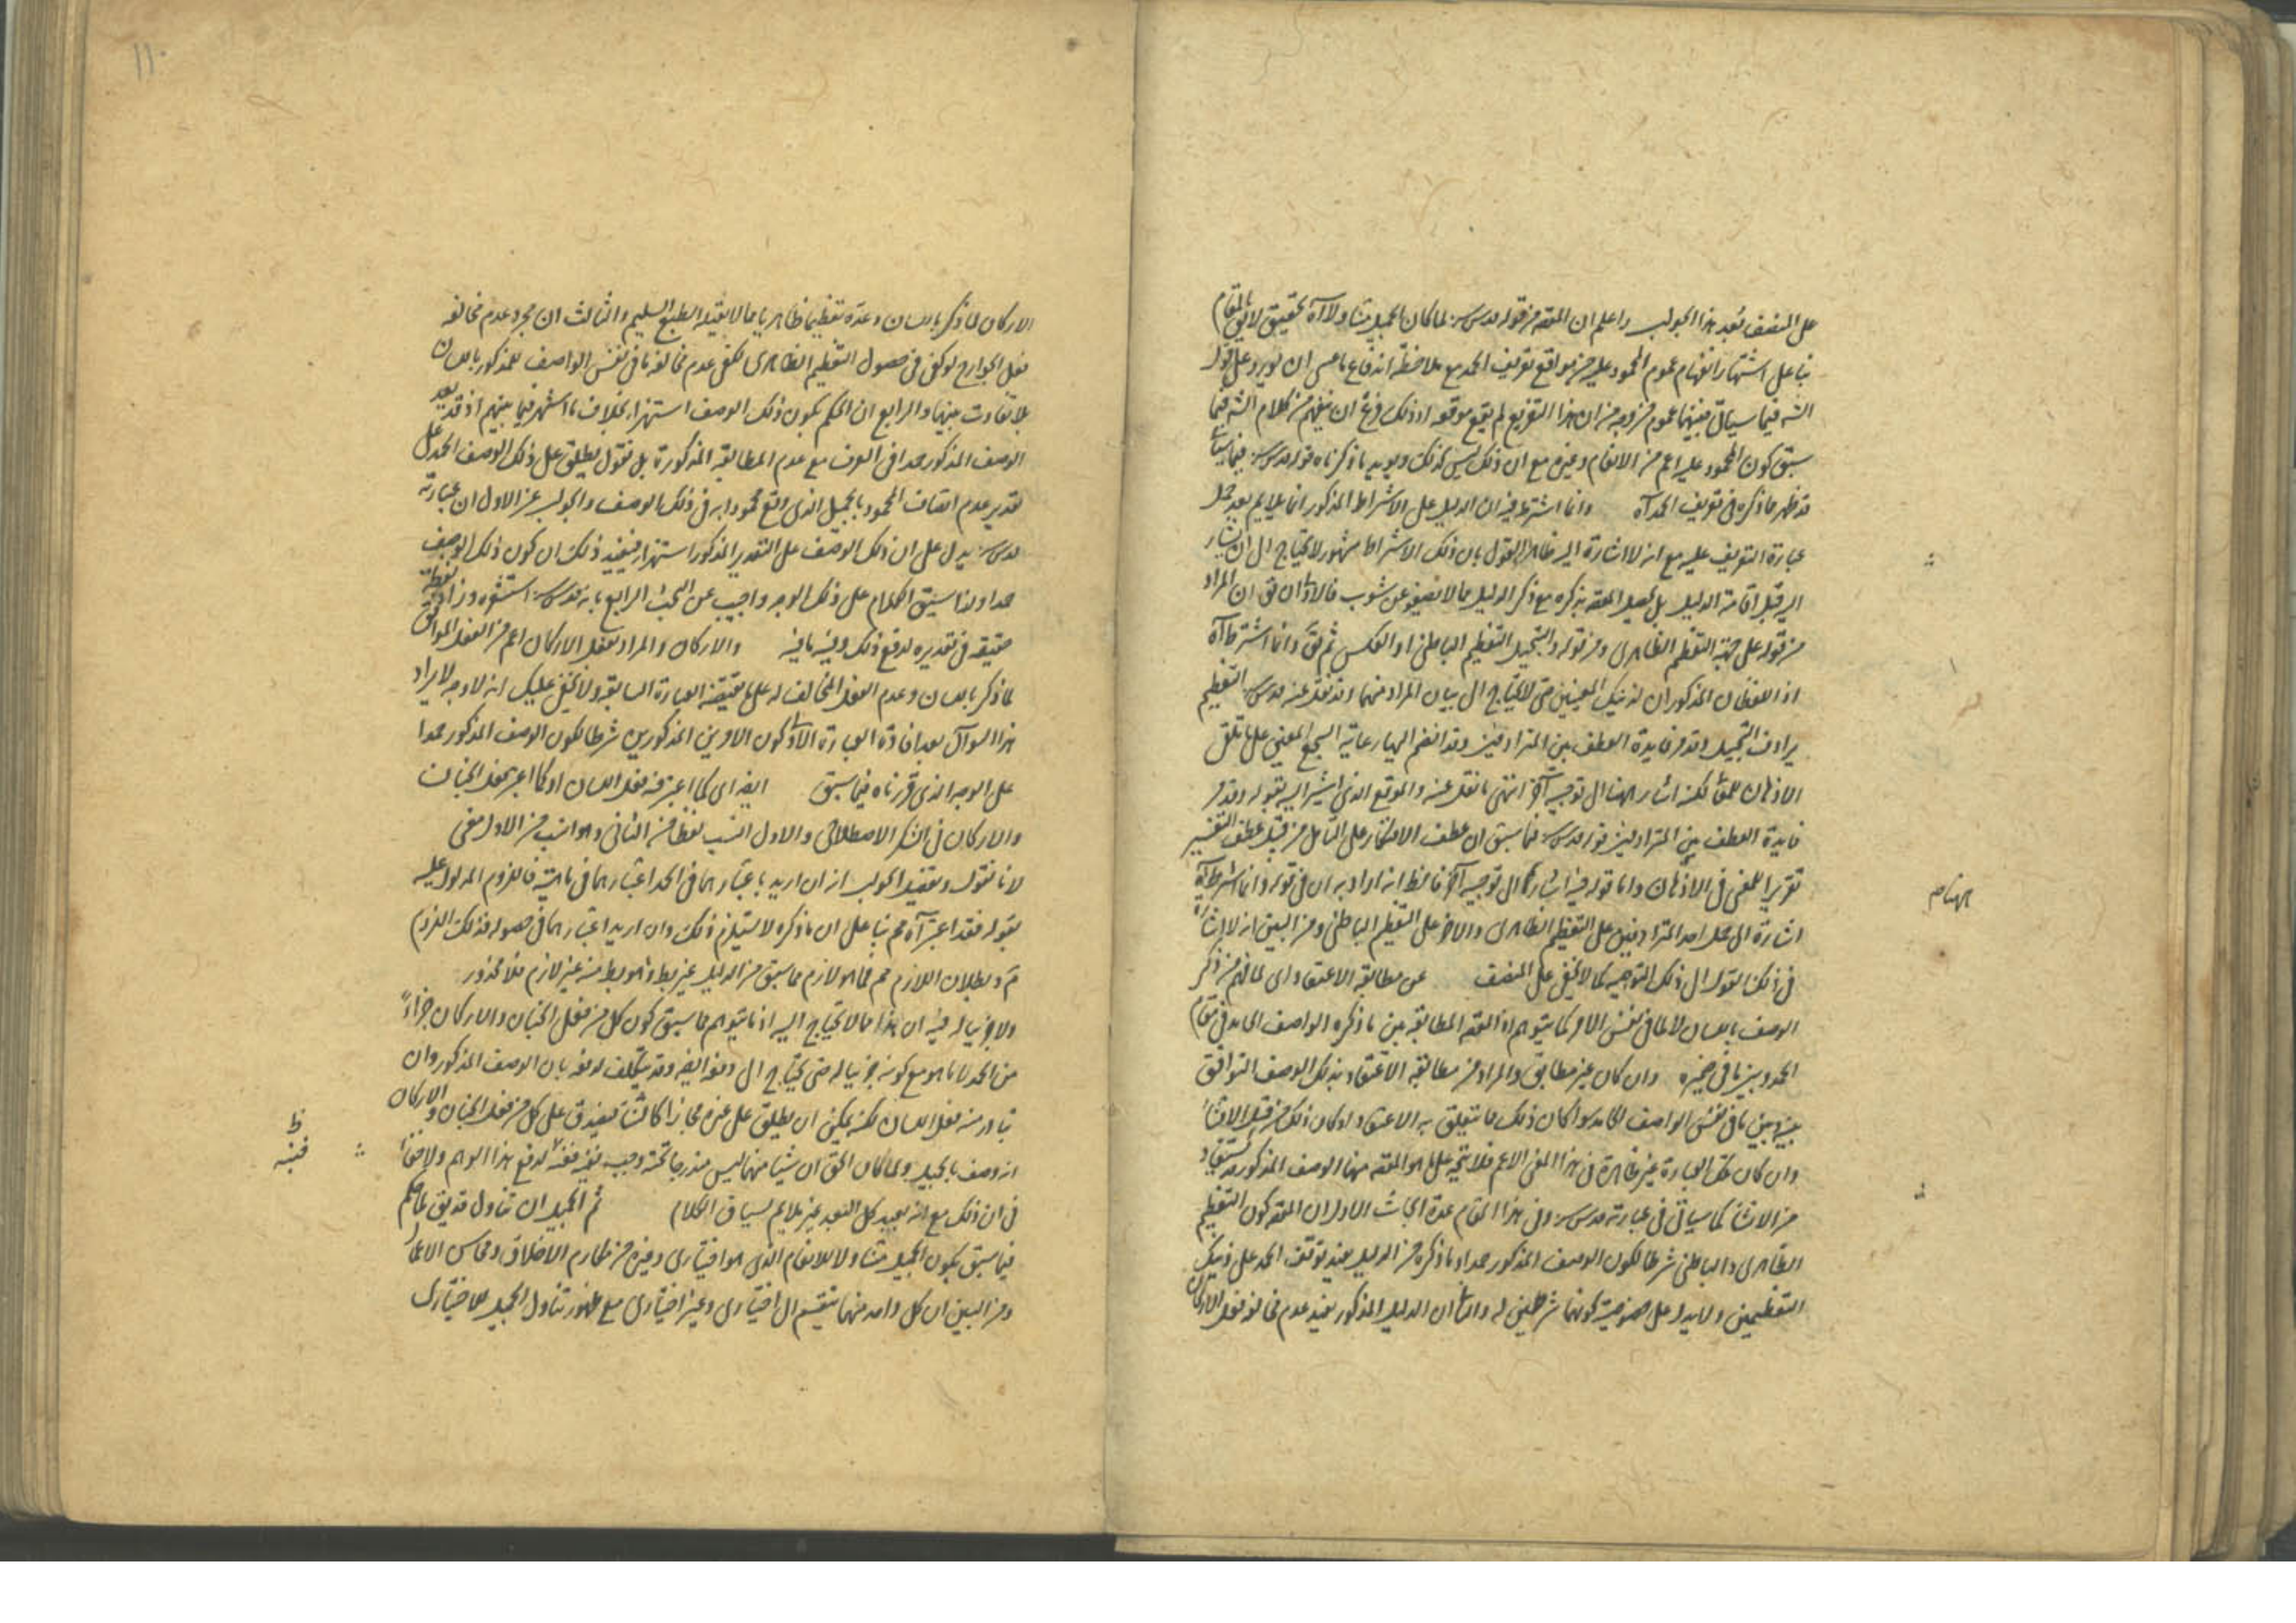 على المنصف بُعد هذا الجواب واعلم ان المقصـ من قوله قدس سره لما كان الجميل متناولا آه تحقيق لايق بالمقام
بناء على اشتهار انفهام عموم المحمود عليه حين موقع تعريف الحمد مع ملاحظة اندفاع ما عسى ان يورد على قول
الشـ فيما سيأتي فبينهما عموم من وجه من ان هذا التفريع لم يقع موقعه اذ ذلك فرع ان يفهم من كلام الشـ فيما
سبق كون المحمود عليه اعم من الانعام وغيره مع ان ذلك ليس كذلك ويويد ما ذكرناه قوله قدس سره فيما سيأتي
قد ظهر مما ذكره في تعريف الحمد آه وانما اشترط فيه ان الدليل على الاشتراط المذكور انما يلايم بعد حمل
عبارة التعريف عليه مع انه لا اشارة اليه ظاهرا القول بان ذلك الاشتراط مشهور لا يحتاج الى ان يشار
اليه قبل اقامة الدليل بل يحصل المقصـ بذكره مع ذكر الدليل مما لا يصفو عن شوب فالاولى ان يق ان المراد
من قوله على جهة التعظيم الظاهرى ومن قوله والتبجيل التعظيم الباطنى او العكس ثم يق وانما اشترط آه
اذ اللفظان المذكوران لذينك المعنيين حتى لا يحتاج الى بيان المراد منهما وقد نقل عنه قدس سره التعظيم
يرادف التبجيل وقد مر فايدة العطف بين المترادفين وقد انضم اليها رعاية السجع المعنى على ما تلقى
الاذهان لكنه اشار ههنا الى توجيه آخر انتهى ما نقل عنه والموقع الذى اشير اليه بقوله وقد مر
فايدة العطف بين المترادفين قوله قدس سره فيما سبق ان عطف الافتخار على التأمل من قبيل عطف التفسير
تقريرا للمعنى في الاذهان واما قوله فيه اشارة الى توجيه آخر فالظ انه اراد به ان في قوله وانما اشترط آه
اشارة الى حمل احد المترادفين على التعظيم الظاهرى والاخر على التعظيم الباطنى ومن البين انه لا اشارة
في ذلك القول الى ذلك التوجيه كما لا يخفى على المنصف عن مطابقة الاعتقاد اى لما فهم من ذكر
الوصف باللسان لا لما في نفس الامر كما يتوهم اذ المقصـ المطابقة بين ما ذكره الواصف الحامد في مقام
الحمد وبين ما في ضميره وان كان غير مطابق والمراد من مطابقة الاعتقاد بذلك الوصف التوافق
بينه وبين ما في نفس الواصف الحامد سواء كان ذلك مما يتعلق به الاعتقاد او كان ذلك من قبيل الانشاء
وان كان تلك العبارة غير ظاهرة في هذا المعنى الاعم فلا يتجه على ما هو المقصـ منها الوصف المذكور قد يستفاد
من الانشاء كما سيأتي في عبارته قدس سره وفي هذا المقام عدة ابحاث الاول ان المقصـ كون التعظيم
الظاهرى والباطنى شرطا لكون الوصف المذكور حمدا وما ذكره من الدليل يفيد توقف الحمد على ذينك
التعظيمين ولا يدل على خصوصية كونهما شرطين له والثانى ان الدليل المذكور يفيد عدم مخالفة فعل الاركان
ههنا صم
الاركان لما ذكر باللسان وعده تعظيما ظاهريا مما لا يقبله الطبع السليم والثالث ان مجرد عدم مخالفة
فعل الجوارح لو كفى في حصول التعظيم الظاهرى لكفى عدم مخالفة ما في نفس الواصف للمذكور باللسان
بلا تفاوت بينهما والرابع ان الحكم بكون ذلك الوصف استهزاء بخلاف ما اشتهر فيما بينهم اذ قد يعد
الوصف المذكور حمدا في العرف مع عدم المطابقة المذكورة بل نقول يطلق على ذلك الوصف الحمد على
تقدير عدم اتصاف المحمود بالجميل الذى وقع محمودا به في ذلك الوصف والجواب عن الاول ان عبارته
قدس سره يدل على ان ذلك الوصف على التقدير المذكور استهزاء فيفيد ذلك ان كون ذلك الوصف
حمدا ولذا سيق الكلام على ذلك الوجه واجيب عن البحث الرابع بانه قدس سره استشعره وزاد لفظة
حقيقة في تقديره لدفع ذلك وفيه ما فيه والاركان والمراد بفعل الاركان اعم من الفعل الموافق
لما ذكر باللسان وعدم الفعل المخالف له على ما يقتضيه العبارة السابقة ولا يخفى عليك انه لا وجه لايراد
هذا السوال بعد افادة العبارة الاولى كون الامرين المذكورين شرطا لكون الوصف المذكور حمدا
على الوجه الذى قررناه فيما سبق ايض اى كما اعتبر فيه فعل اللسان او كما اعتبر فعل الجنان
والاركان في الشكر الاصطلاحى والاول انسب لفظا من الثانى وهو انسب من الاول معنى
لانا نقول وتفصيل الجواب انه ان اريد باعتبارهما في الحمد اعتبارهما في ماهيته فاللزوم المدلول عليه
بقوله فقد اعتبر آه مم بناء على ان ما ذكره لا يستلزم ذلك وان اريد اعتبارهما في حصوله فذلك اللزوم
مَ وبطلان اللازم مم فما هو لازم مما سبق من الدليل غير بط وما هو بط منه غير لازم فلا محذور
ولا جزئيا له فيه ان هذا مما لا يحتاج اليه اذ ما يتوهم مما سبق كون كل من فعل الجنان والاركان جزاءً
من الحمد لا ما هو مع كونه جزئيا له حتى يحتاج الى دفعه ايض وقد يتكلف لدفعه بان الوصف المذكور وان
تبادر منه فعل اللسان لكنه يمكن ان يطلق على غيره مجازا كالثناء فيصدق على كل من فعل الجنان والاركان
انه وصف بالجميل ولما كان الحق ان شيئا منهما ليس مندرجا تحته وجب لدفع هذا الوهم ولا خفاء
في ان ذلك مع انه بعيد كل البعد غير ملايم لسياق الكلام ثم الجميل ان تناول قد يق لما حكم
فيما سبق بكون الجميل متناولا للانعام الذى هو اختيارى وغيره من مكارم الاخلاق ومحاسن الاعمال
ومن البين ان كل واحد منهما ينقسم الى اختيارى وغير اختيارى مع ظهور تناول الجميل للاختيارى
ظ
فيه
١١٠